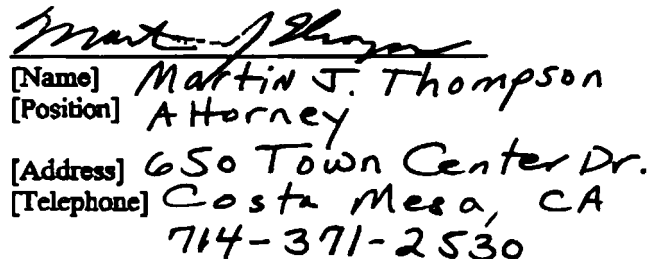 [Name] Martin J. Thompson
[Position] Attorney
[Address] 650 Town Center Dr.
[Telephone] Costa Mesa, CA
714-371-2530